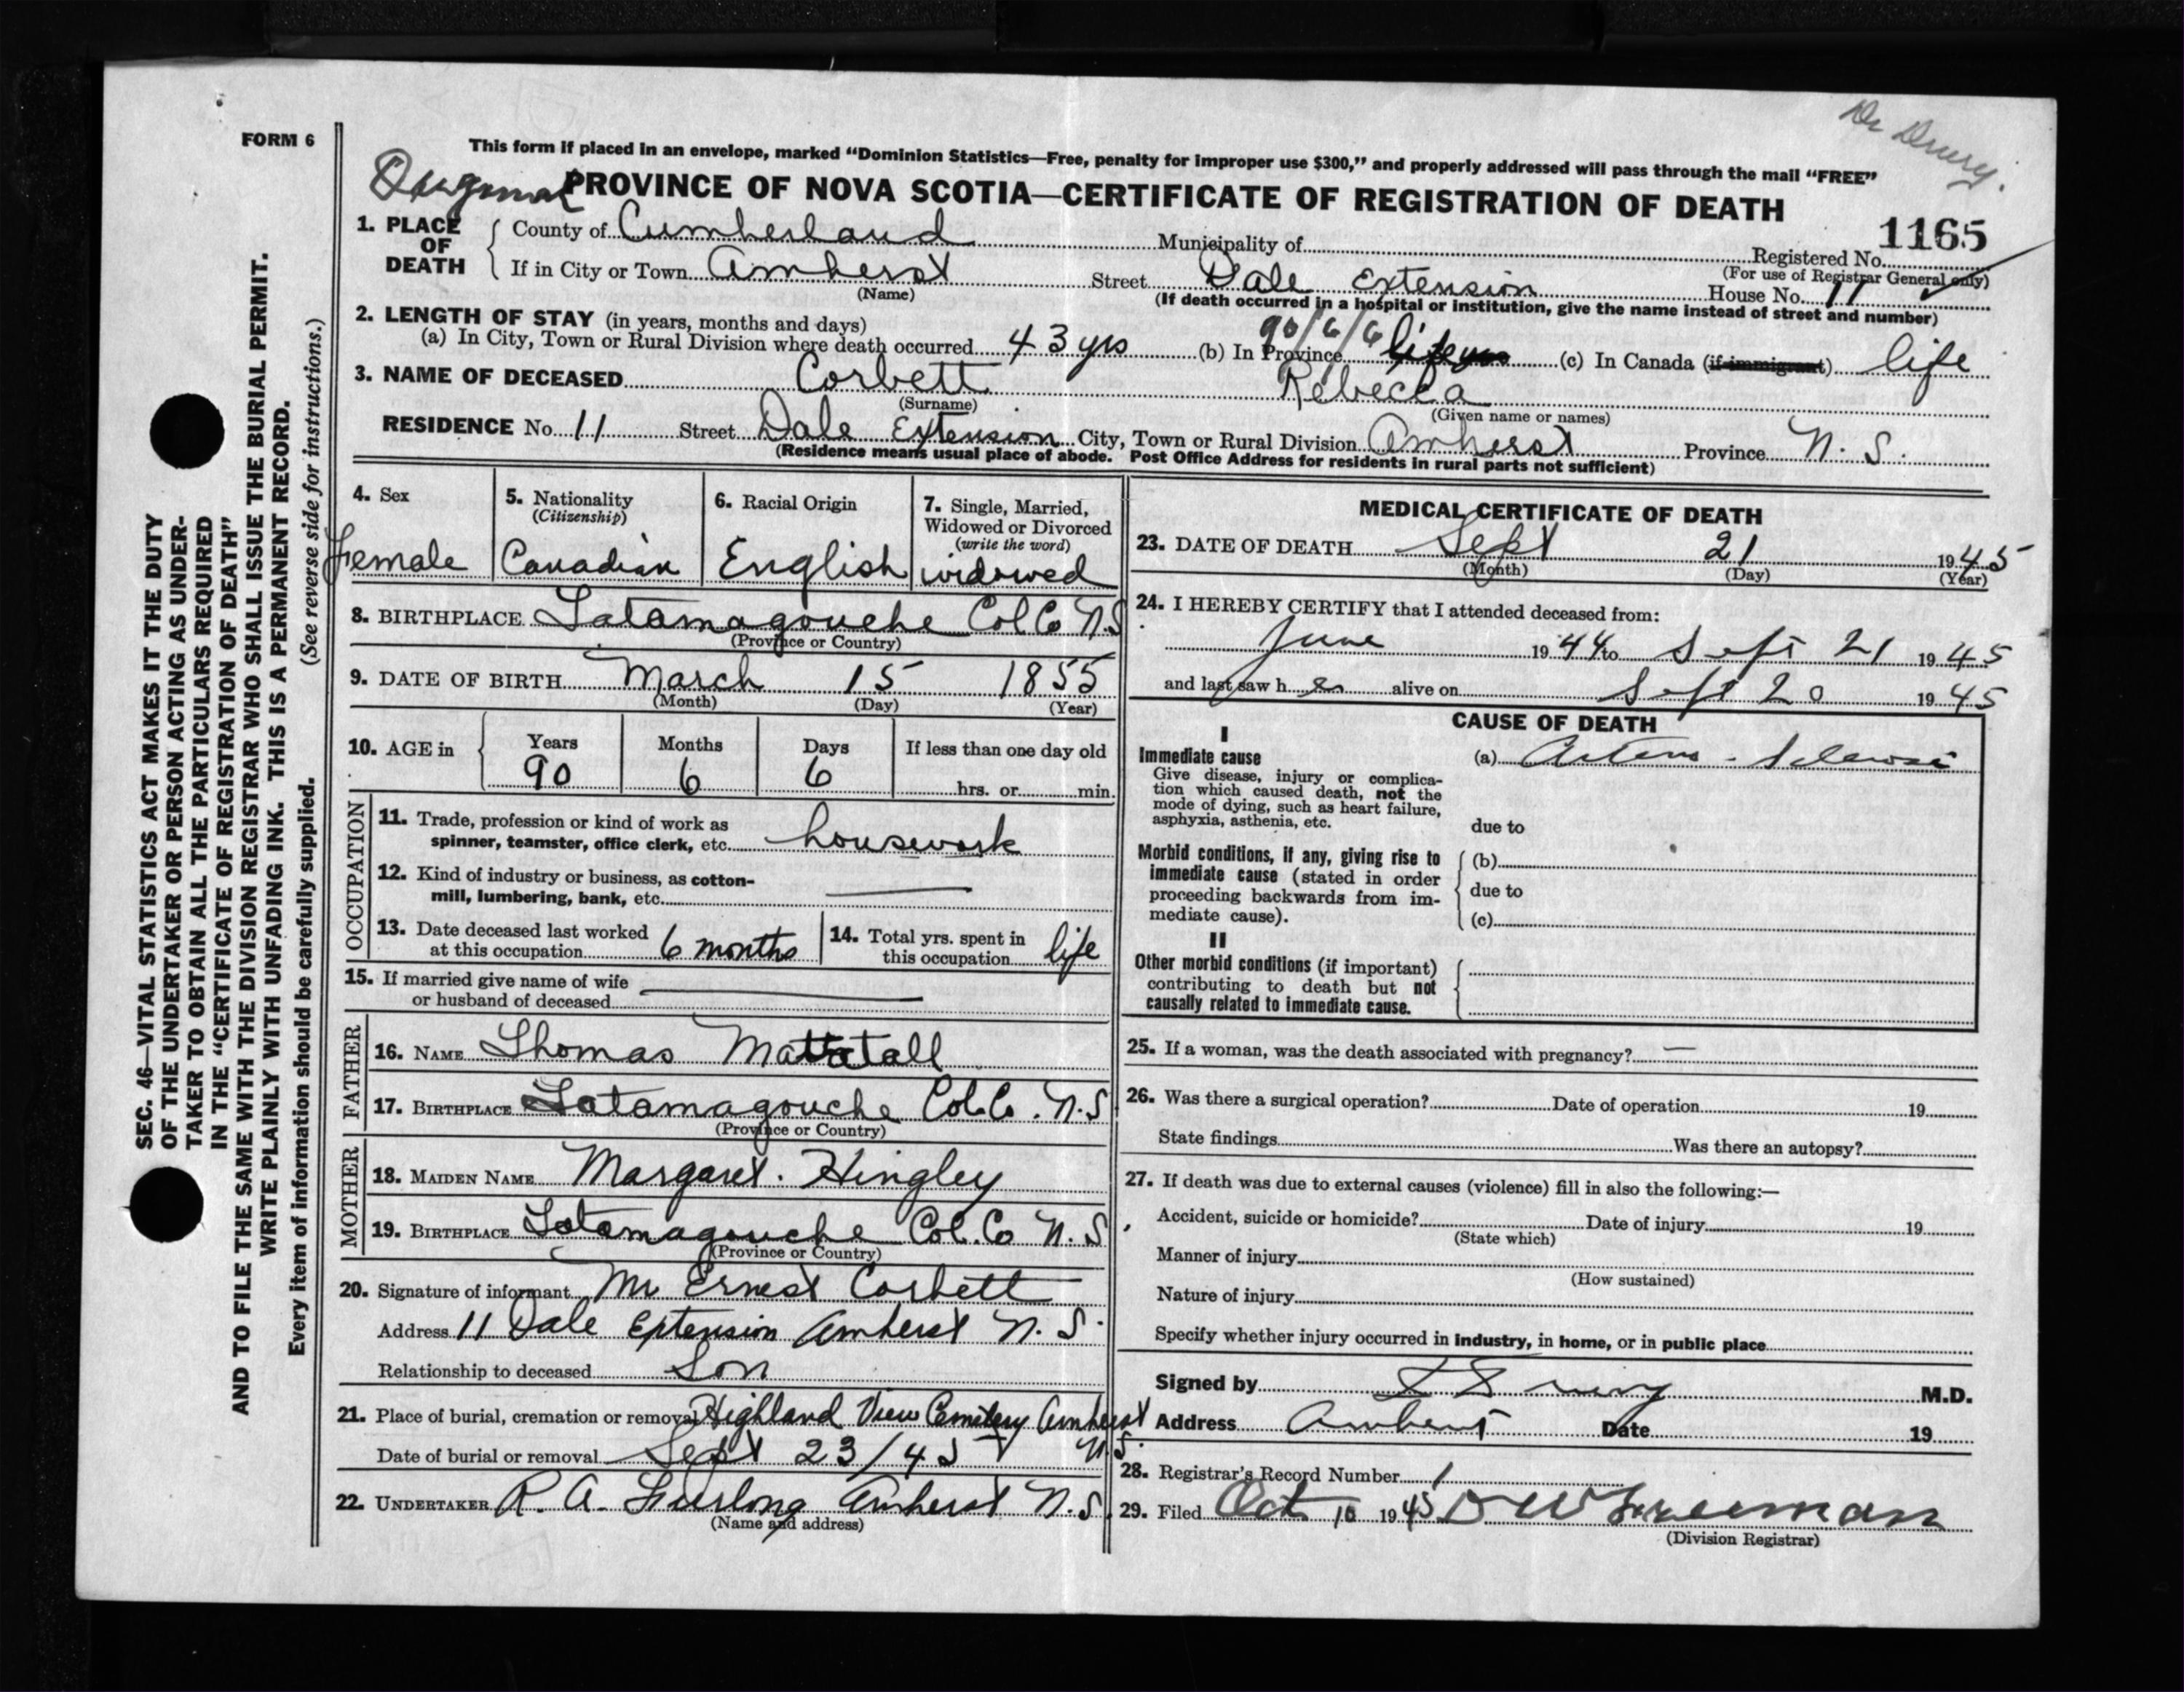 Dr Drury.
FORM 6
This form if placed in an envelope, marked "Dominion Statistics—Free, penalty for improper use $300," and properly addressed will pass through the mail "FREE"
PROVINCE OF NOVA SCOTIA—CERTIFICATE OF REGISTRATION OF DEATH
1165
1. PLACE OF DEATH { County of Cumberland Municipality of Registered No.
(For use of Registrar General only)
If in City or Town Amherst Street Dale Extension House No. 11
(Name) (If death occurred in a hospital or institution, give the name instead of street and number)
2. LENGTH OF STAY (in years, months and days) 90/6/6
(a) In City, Town or Rural Division where death occurred 43 yrs (b) In Province life (c) In Canada (if immigrant) life
3. NAME OF DECEASED Corbett Rebecca
(Surname) (Given name or names)
RESIDENCE No. 11 Street Dale Extension City, Town or Rural Division Amherst Province N.S.
(Residence means usual place of abode. Post Office Address for residents in rural parts not sufficient)
4. Sex
Female
5. Nationality
(Citizenship)
Canadian
6. Racial Origin
English
7. Single, Married,
Widowed or Divorced
(write the word)
widowed
8. BIRTHPLACE Tatamagouche Col Co N.S
(Province or Country)
9. DATE OF BIRTH March 15 1855
(Month) (Day) (Year)
10. AGE in { Years Months Days If less than one day old
90 6 6 hrs. or min.
OCCUPATION
11. Trade, profession or kind of work as
spinner, teamster, office clerk, etc. housework
12. Kind of industry or business, as cotton-
mill, lumbering, bank, etc. —
13. Date deceased last worked
at this occupation 6 months
14. Total yrs. spent in
this occupation life
15. If married give name of wife
or husband of deceased —
FATHER
16. NAME Thomas Mattatall
17. BIRTHPLACE Tatamagouche Col.Co. N.S
(Province or Country)
MOTHER
18. MAIDEN NAME Margaret. Hingley
19. BIRTHPLACE Tatamagouche Col.Co N.S
(Province or Country)
20. Signature of informant Mr Ernest Corbett
Address 11 Dale Extension Amherst N.S.
Relationship to deceased Son
21. Place of burial, cremation or removal Highland View Cemetery Amherst
N.S.
Date of burial or removal Sept 23/45
22. UNDERTAKER R. A. Furlong Amherst N.S.
(Name and address)
MEDICAL CERTIFICATE OF DEATH
23. DATE OF DEATH Sept 21 1945
(Month) (Day) (Year)
24. I HEREBY CERTIFY that I attended deceased from:
June 1944 to Sept 21 1945
and last saw h er alive on Sept 20 1945
CAUSE OF DEATH
I
Immediate cause
Give disease, injury or complica-
tion which caused death, not the
mode of dying, such as heart failure,
asphyxia, asthenia, etc.
(a)
due to
Morbid conditions, if any, giving rise to
immediate cause (stated in order
proceeding backwards from im-
mediate cause).
(b)
due to
(c)
II
Other morbid conditions (if important)
contributing to death but not
causally related to immediate cause.
25. If a woman, was the death associated with pregnancy? —
26. Was there a surgical operation? Date of operation 19
State findings Was there an autopsy?
27. If death was due to external causes (violence) fill in also the following:—
Accident, suicide or homicide? Date of injury 19
(State which)
Manner of injury
(How sustained)
Nature of injury
Specify whether injury occurred in industry, in home, or in public place
Signed by M.D.
Address Amherst Date 19
28. Registrar's Record Number 1
29. Filed Oct 10 1945 D W Freeman
(Division Registrar)
SEC. 46—VITAL STATISTICS ACT MAKES IT THE DUTY
OF THE UNDERTAKER OR PERSON ACTING AS UNDER-
TAKER TO OBTAIN ALL THE PARTICULARS REQUIRED
IN THE "CERTIFICATE OF REGISTRATION OF DEATH"
AND TO FILE THE SAME WITH THE DIVISION REGISTRAR WHO SHALL ISSUE THE BURIAL PERMIT.
WRITE PLAINLY WITH UNFADING INK. THIS IS A PERMANENT RECORD.
Every item of information should be carefully supplied. (See reverse side for instructions.)